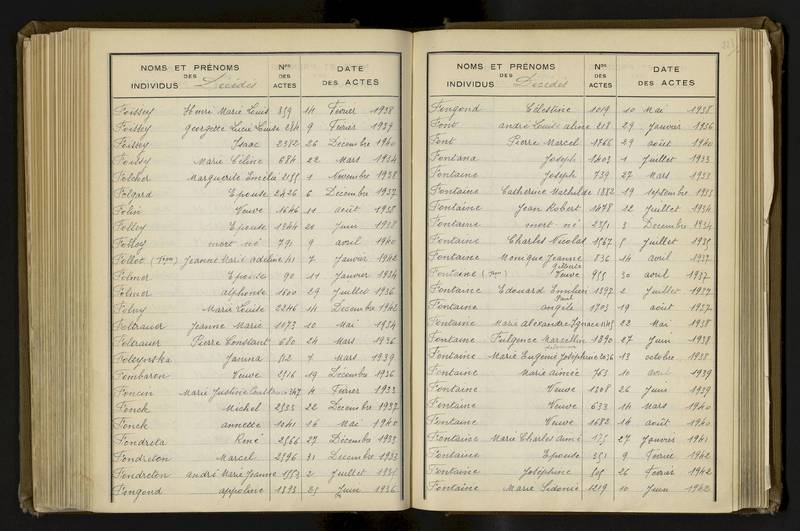 NOMS ET PRÉNOMS DES INDIVIDUS Décédés Nos DES ACTES DATE DES ACTES
Foissey Henri Marie Louis 859 14 Février 1938
Foissey Georgette Lucie Louise 284 9 Février 1939
Foissey Isaac 2382 26 Décembre 1940
Foissy Marie Céline 684 22 Mars 1934
Folcher Marguerite Emélie 2155 1 Novembre 1938
Folgard Epouse 2426 6 Décembre 1937
Folin Veuve 1646 11 août 1938
Folley Epouse 1344 20 Juin 1938
Folloy mort né 791 9 avril 1940
Jeanne Marie Adeline 41 7 Janvier 1942
Folmer Epouse 90 11 Janvier 1934
Folmer alphonse 1600 29 Juillet 1936
Folny Marie Louise 2246 14 Décembre 1942
Foltrauer Jeanne Marie 1073 10 Mai 1934
Foltrauer Pierre Constant 680 24 Mars 1936
Janina 512 7 Mars 1939
Fombaron Veuve 2516 19 Décembre 1936
Foncin Marie Justine 347 4 Février 1933
Fonck Michel 2533 22 Décembre 1937
Fonck annette 1041 16 Mai 1940
Fondrela René 2566 27 Décembre 1933
Fondreton Marcel 2596 31 Décembre 1933
Fondreton andré Marie Jeanne 1553 2 Juillet 1935
Fongond appoline 1393 25 Juin 1936
NOMS ET PRÉNOMS DES INDIVIDUS Décédés Nos DES ACTES DATE DES ACTES
Fongond Célestine 1019 10 Mai 1938
Font andré Louis aline 218 29 Janvier 1936
Font Pierre Marcel 1766 29 août 1940
Fontana Joseph 1403 1 Juillet 1933
Fontaine Joseph 739 27 Mars 1933
Fontaine Catherine Mathilde 1882 19 septembre 1933
Fontaine Jean Robert 1478 12 Juillet 1934
Fontaine mort né 2351 3 Décembre 1934
Fontaine Charles Nicolas 1567 5 Juillet 1935
Fontaine Monique Jeanne 836 14 avril 1937
Fontaine Veuve 955 30 avril 1937
Fontaine Edouard Emilien Paul 1397 2 Juillet 1937
Fontaine angèle 1703 19 août 1937
Fontaine Marie alexandre Ignace 1145 22 Mai 1938
Fontaine Fulgence Marcellin 1390 27 Juin 1938
Fontaine Marie Eugénie Joséphine 2036 13 octobre 1938
Fontaine Marie aimée 763 10 avril 1939
Fontaine Veuve 1308 26 Juin 1939
Fontaine Veuve 633 14 Mars 1940
Fontaine Veuve 1682 14 août 1940
Fontaine Marie Charles aimé 27 Janvier 1941
Fontaine Epouse 351 9 Février 1942
Fontaine Joséphine 26 Février 1942
Fontaine Marie Sidonie 1219 10 Juin 1942